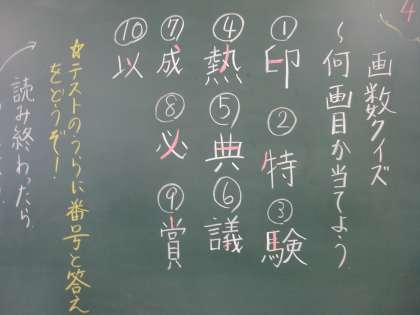 4
画数クイズ
~何画目か当てよう
①印 ②特 ③験
④熱 ⑤典 ⑥議
⑦成 ⑧必 ⑨賞
⑩以
☆テストのうらに番号と答え
をどうぞ!
読み終わったら